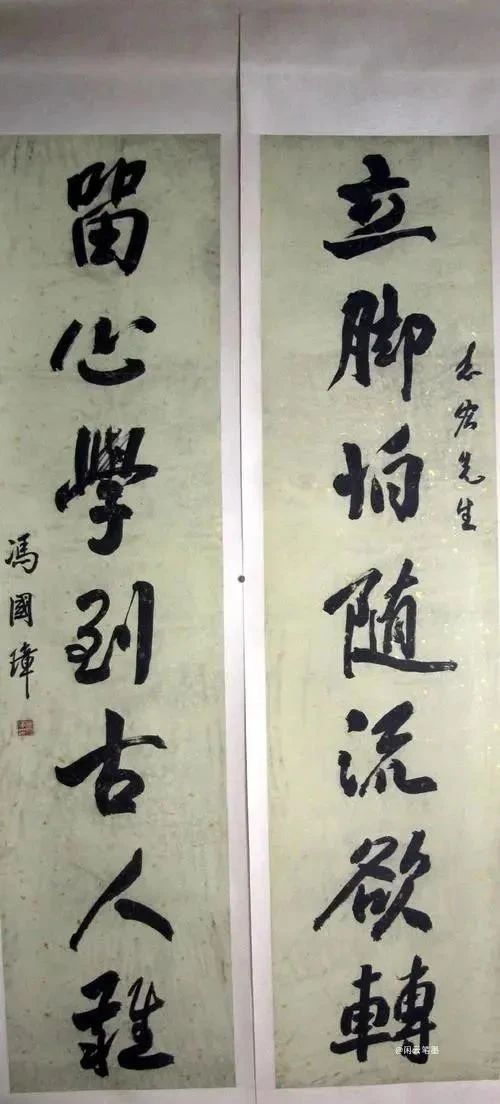 立脚怕随流欲轉
宏先生
留心學到古人難
馮國璋
@闲云笔墨